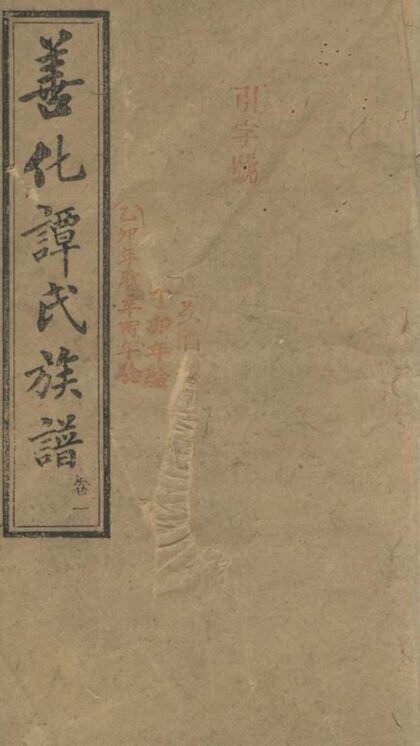 善化譚氏族譜
卷一
引字號
乙卯年驗辛酉年驗
丁卯年驗
癸酉